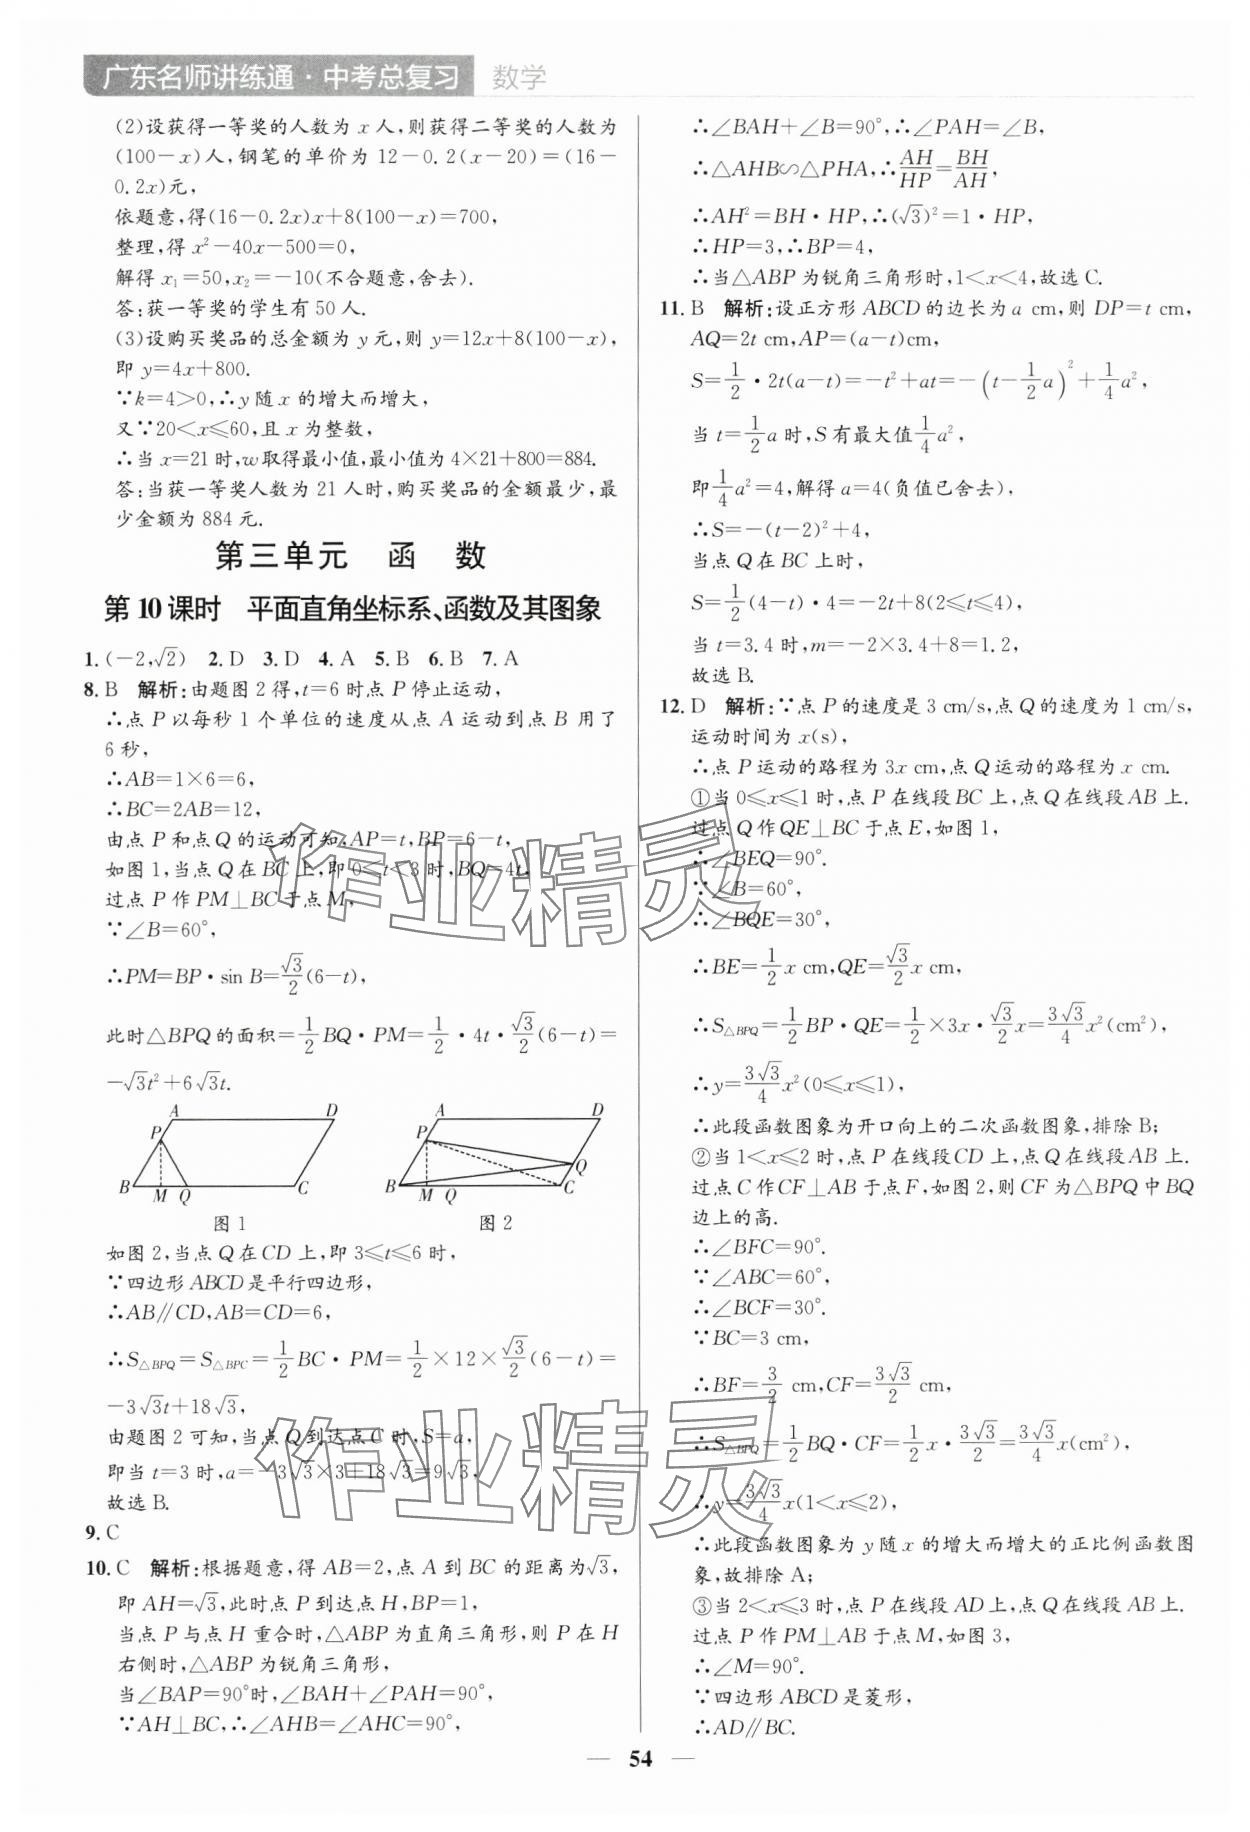 广东名师讲练通·中考总复习 数学
(2)设获得一等奖的人数为 x 人,则获得二等奖的人数为
(100-x)人,钢笔的单价为 12-0.2(x-20)=(16-
0.2x)元,
依题意,得(16-0.2x)x+8(100-x)=700,
整理,得 x²-40x-500=0,
解得 x₁=50,x₂=-10(不合题意,舍去).
答:获一等奖的学生有 50 人.
(3)设购买奖品的总金额为 y 元,则 y=12x+8(100-x),
即 y=4x+800.
∵k=4>0,∴y 随 x 的增大而增大,
又∵20<x≤60,且 x 为整数,
∴当 x=21 时,w取得最小值,最小值为 4×21+800=884.
答:当获一等奖人数为 21 人时,购买奖品的金额最少,最
少金额为 884 元.
第三单元 函 数
第 10 课时 平面直角坐标系、函数及其图象
1.(-2,√2) 2.D 3.D 4.A 5.B 6.B 7.A
8.B 解析:由题图 2 得,t=6 时点 P 停止运动,
∴点 P 以每秒 1 个单位的速度从点 A 运动到点 B 用了
6 秒,
∴AB=1×6=6,
∴BC=2AB=12,
由点 P 和点 Q 的运动可知,AP=t,BP=6-t,
如图 1,当点 Q 在 BC 上,即 0≤t<3 时,BQ=4t,
过点 P 作 PM⊥BC于点 M,
∵∠B=60°,
∴PM=BP·sin B=√3/2(6-t),
此时△BPQ的面积=1/2BQ·PM=1/2·4t·√3/2(6-t)=
-√3t²+6√3t.
A D P B M Q C
图 1
A D P Q B M Q C
图 2
如图 2,当点 Q 在 CD 上,即 3≤t≤6 时,
∵四边形 ABCD 是平行四边形,
∴AB∥CD,AB=CD=6,
∴S△BPQ=S△BPC=1/2BC·PM=1/2×12×√3/2(6-t)=
-3√3t+18√3,
由题图 2 可知,当点 Q 到达点 C 时,S=a,
即当 t=3 时,a=-3√3×3+18√3=9√3,
故选 B.
9.C
10.C 解析:根据题意,得 AB=2,点 A 到 BC 的距离为√3,
即 AH=√3,此时点 P 到达点 H,BP=1,
当点 P 与点 H 重合时,△ABP 为直角三角形,则 P 在 H
右侧时,△ABP 为锐角三角形,
当∠BAP=90°时,∠BAH+∠PAH=90°,
∵AH⊥BC,∴∠AHB=∠AHC=90°,
∴∠BAH+∠B=90°,∴∠PAH=∠B,
∴△AHB∽△PHA,∴AH/HP=BH/AH,
∴AH²=BH·HP,∴(√3)²=1·HP,
∴HP=3,∴BP=4,
∴当△ABP 为锐角三角形时,1<x<4,故选 C.
11.B 解析:设正方形 ABCD 的边长为 a cm,则 DP=t cm,
AQ=2t cm,AP=(a-t)cm,
S=1/2·2t(a-t)=-t²+at=-(t-1/2a)²+1/4a²,
当 t=1/2a 时,S 有最大值1/4a²,
即1/4a²=4,解得 a=4(负值已舍去),
∴S=-(t-2)²+4,
当点 Q 在 BC 上时,
S=1/2(4-t)·4=-2t+8(2≤t≤4),
当 t=3.4 时,m=-2×3.4+8=1.2,
故选 B.
12.D 解析:∵点 P 的速度是 3 cm/s,点 Q 的速度为 1 cm/s,
运动时间为 x(s),
∴点 P 运动的路程为 3x cm,点 Q 运动的路程为 x cm.
①当 0≤x≤1 时,点 P 在线段 BC 上,点 Q 在线段 AB 上.
过点 Q 作 QE⊥BC 于点 E,如图 1,
∴∠BEQ=90°.
∵∠B=60°,
∴∠BQE=30°,
∴BE=1/2x cm,QE=√3/2x cm,
∴S△BPQ=1/2BP·QE=1/2×3x·√3/2x=3√3/4x²(cm²),
∴y=3√3/4x²(0≤x≤1),
∴此段函数图象为开口向上的二次函数图象,排除 B;
②当 1<x≤2 时,点 P 在线段 CD 上,点 Q 在线段 AB 上.
过点 C 作 CF⊥AB 于点 F,如图 2,则 CF 为△BPQ 中 BQ
边上的高.
∴∠BFC=90°.
∵∠ABC=60°,
∴∠BCF=30°.
∵BC=3 cm,
∴BF=3/2 cm,CF=3√3/2 cm,
∴S△BPQ=1/2BQ·CF=1/2x·3√3/2=3√3/4x(cm²),
∴y=3√3/4x(1<x≤2),
∴此段函数图象为 y 随 x 的增大而增大的正比例函数图
象,故排除 A;
③当 2<x≤3 时,点 P 在线段 AD 上,点 Q 在线段 AB 上.
过点 P 作 PM⊥AB 于点 M,如图 3,
∴∠M=90°.
∵四边形 ABCD 是菱形,
∴AD∥BC.
54
作业精灵
作业精灵